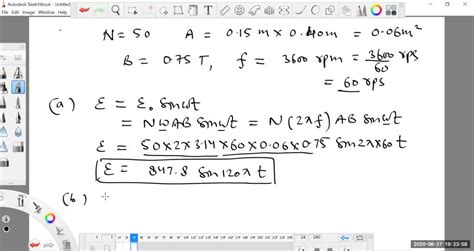 Autodesk SketchBook - Untitled
N = 50 A = 0.15 m x 0.40m = 0.06m²
B = 0.75 T, f = 3600 rpm = 3600/60 rps
= 60 rps
(a) Ɛ = Ɛ₀ Sinωt
= NωAB Sinωt = N(2πf) AB Sinωt
Ɛ = 50×2×3.14×60×0.06×0.75 Sin2π×60 t
Ɛ = 847.8 Sin120π t
(b)
2020-08-27 19:23:58